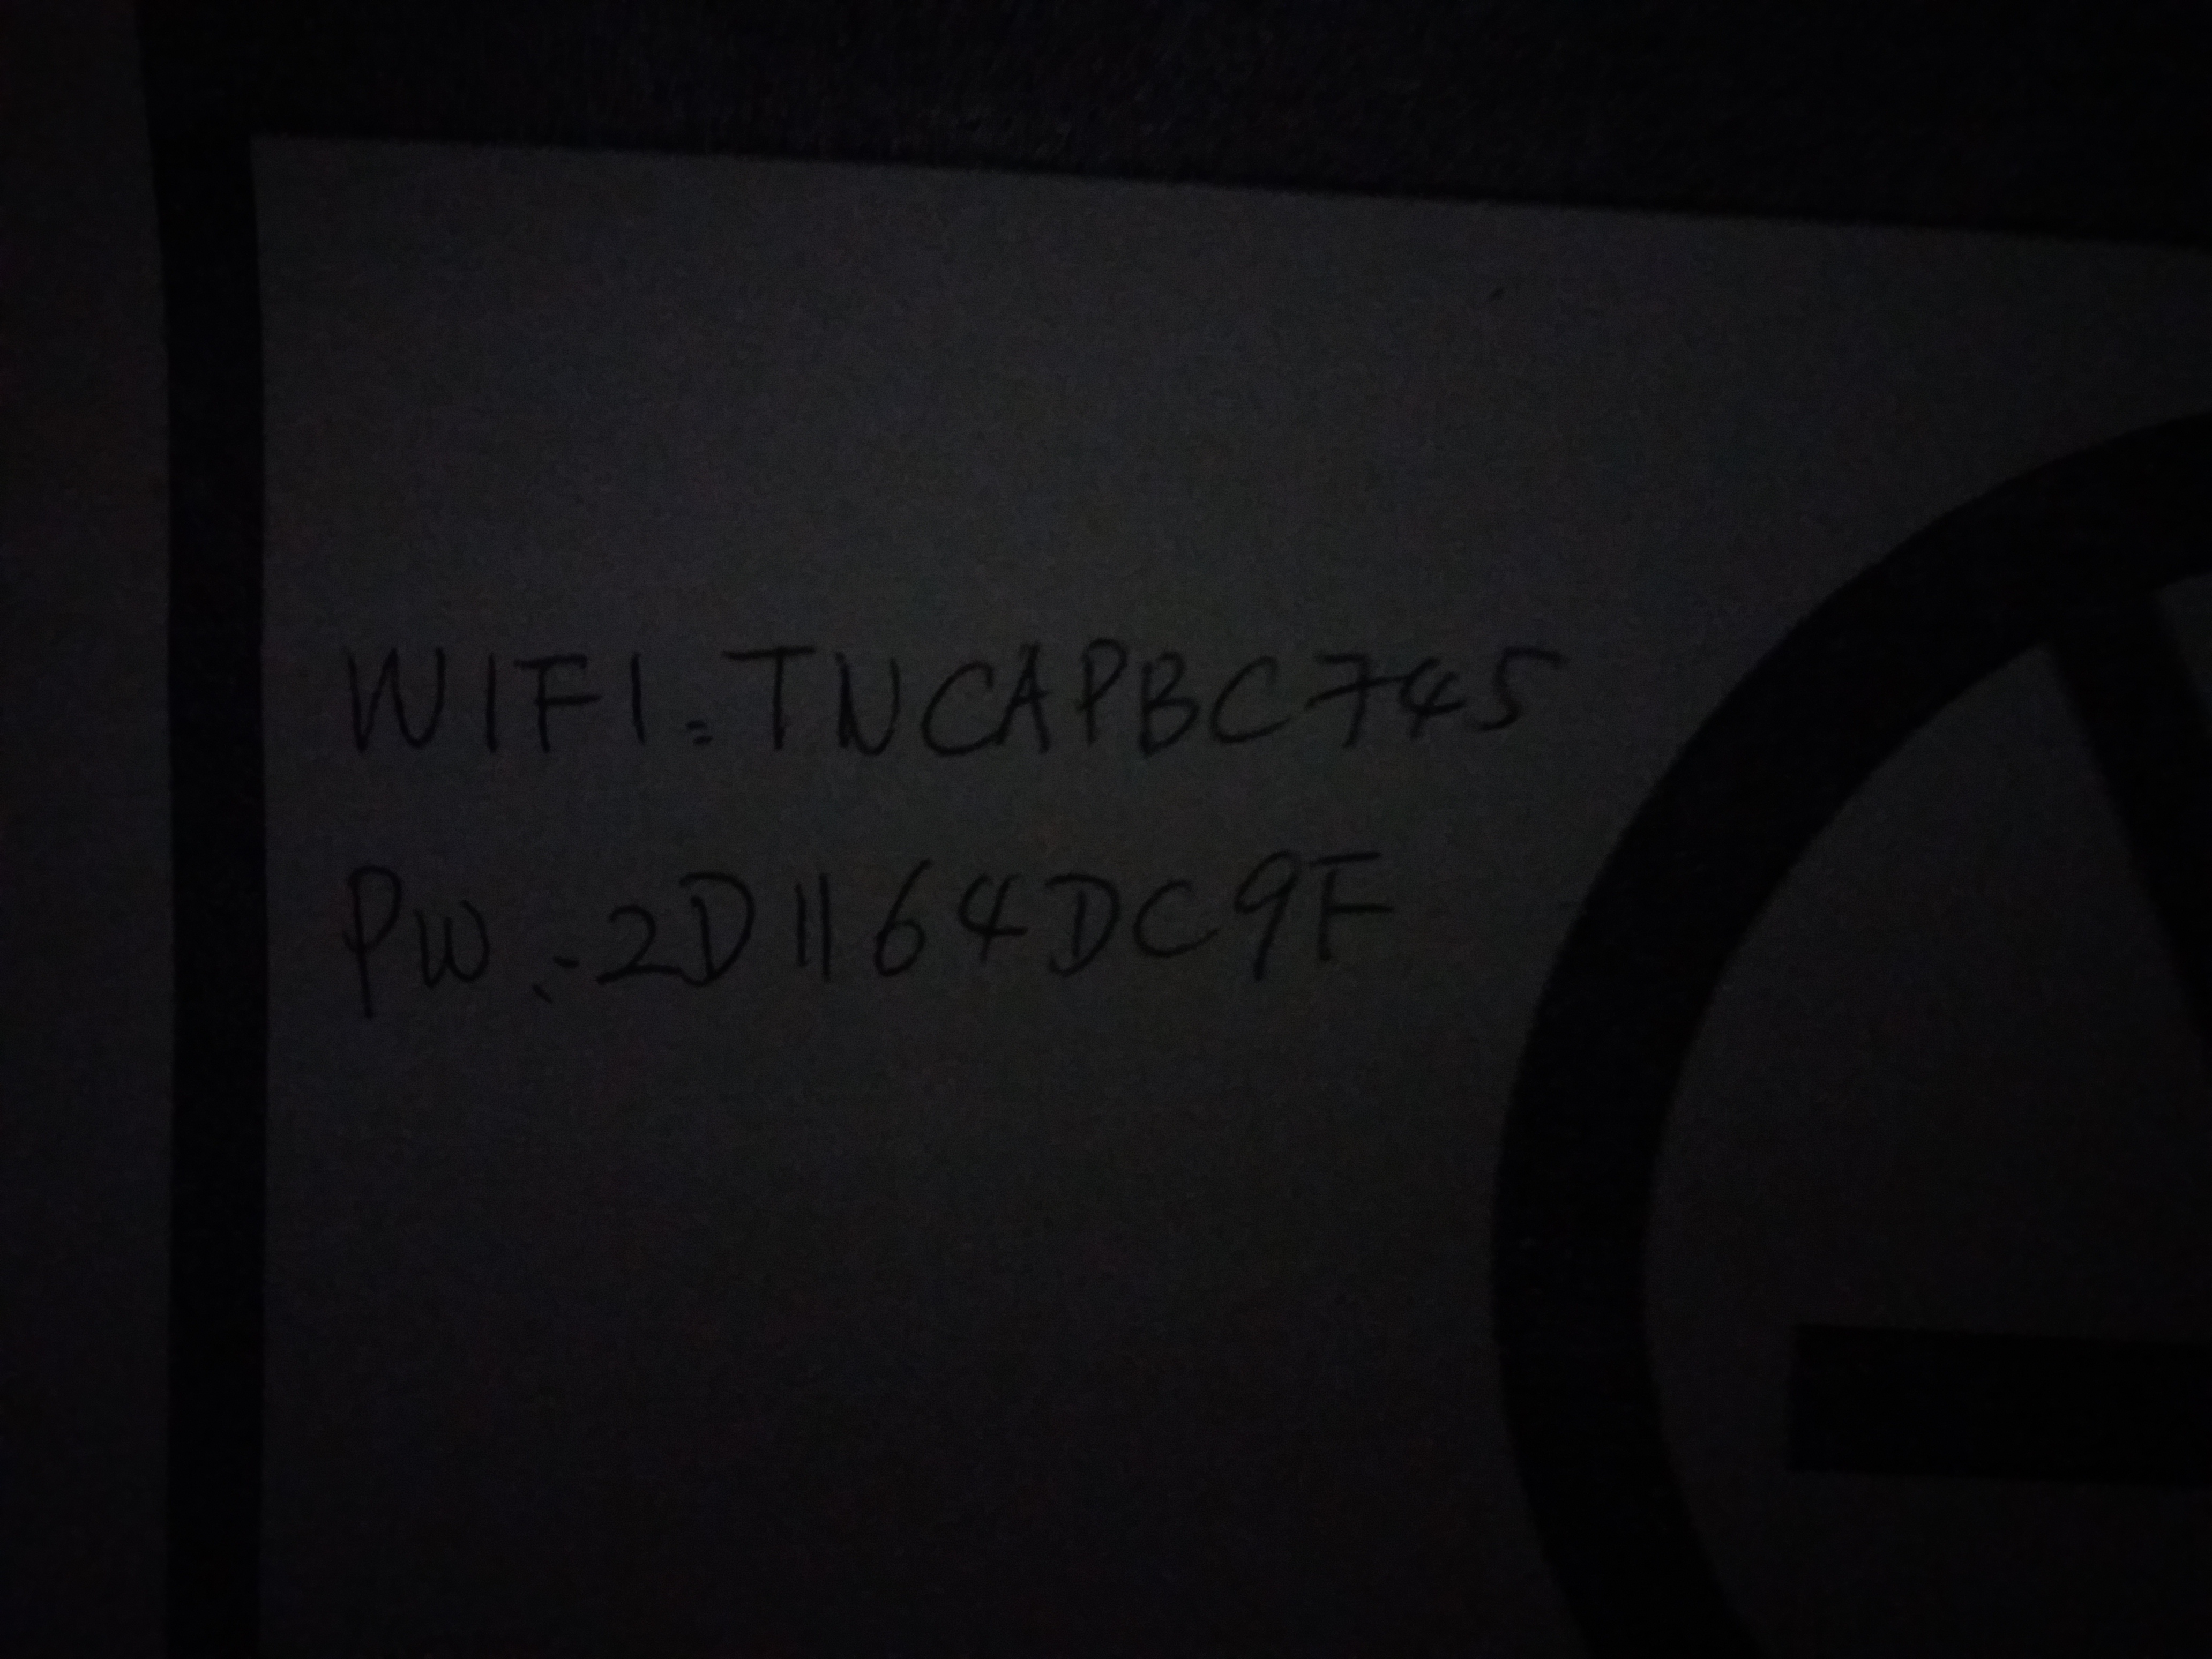 WIFI:TNCAPBC745
PW:2D1164DC9F